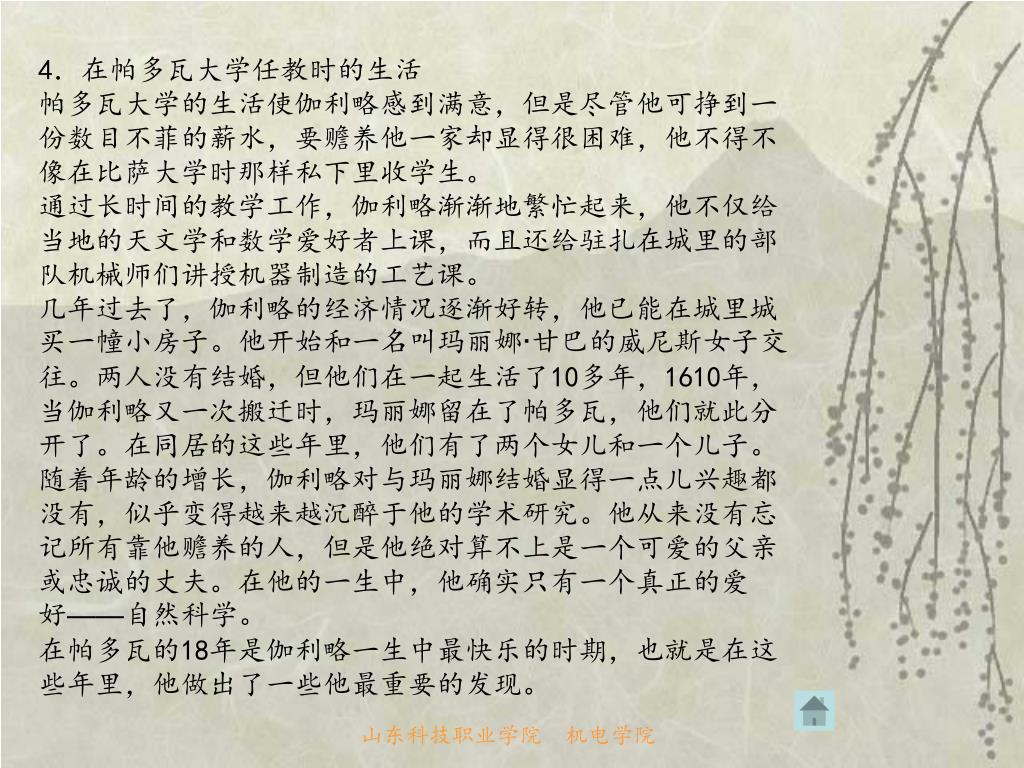 4. 在帕多瓦大学任教时的生活
帕多瓦大学的生活使伽利略感到满意，但是尽管他可挣到一
份数目不菲的薪水，要赡养他一家却显得很困难，他不得不
像在比萨大学时那样私下里收学生。
通过长时间的教学工作，伽利略渐渐地繁忙起来，他不仅给
当地的天文学和数学爱好者上课，而且还给驻扎在城里的部
队机械师们讲授机器制造的工艺课。
几年过去了，伽利略的经济情况逐渐好转，他已能在城里城
买一幢小房子。他开始和一名叫玛丽娜·甘巴的威尼斯女子交
往。两人没有结婚，但他们在一起生活了10多年，1610年，
当伽利略又一次搬迁时，玛丽娜留在了帕多瓦，他们就此分
开了。在同居的这些年里，他们有了两个女儿和一个儿子。
随着年龄的增长，伽利略对与玛丽娜结婚显得一点儿兴趣都
没有，似乎变得越来越沉醉于他的学术研究。他从来没有忘
记所有靠他赡养的人，但是他绝对算不上是一个可爱的父亲
或忠诚的丈夫。在他的一生中，他确实只有一个真正的爱
好——自然科学。
在帕多瓦的18年是伽利略一生中最快乐的时期，也就是在这
些年里，他做出了一些他最重要的发现。
山东科技职业学院 机电学院